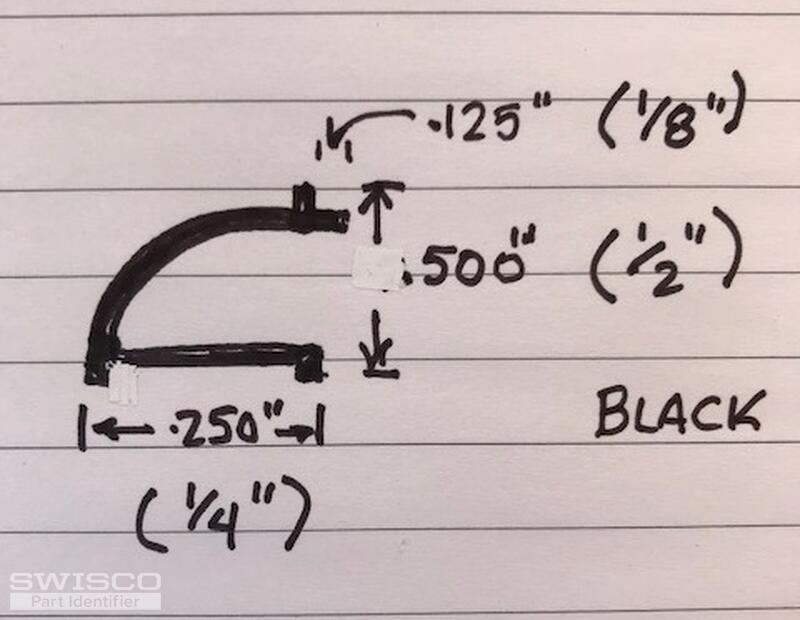 .125" (1/8")
.500" (1/2")
BLACK
.250"
(1/4")
SWISCO
Part Identifier